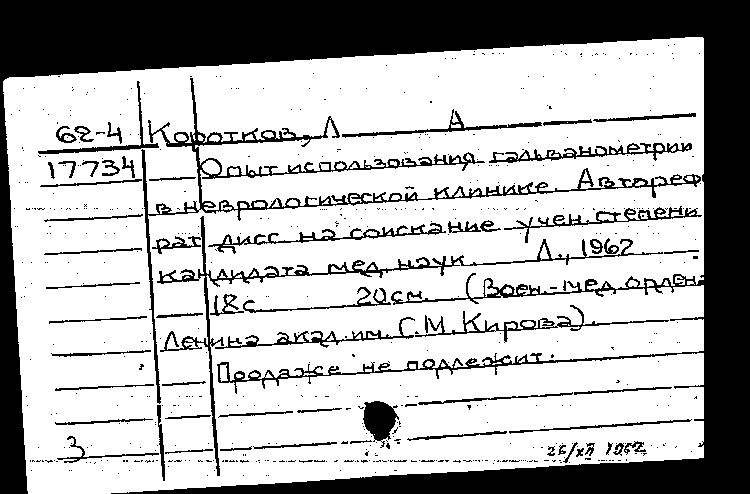 62-4 Коротков, Л А
17734 Опыт использования гальванометрии
в неврологической клинике. Автореф
рат дисс на соискание учен. степени
кандидата мед. наук. Л., 1962
18 с 20 см. (Воен.-мед. ордена
Ленина акад. им. С.М. Кирова).
Продаже не подлежит.
3 26/XII 1962